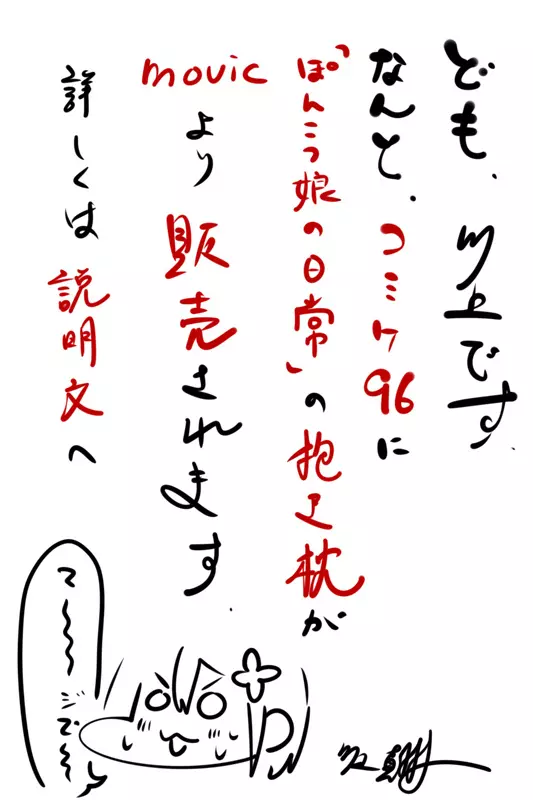 ども、川上です。
なんと、コミケ96に
「ぽんこつ娘の日常」の抱き枕が
movicより販売されます。
詳しくは説明文へ
て〜〜〜ジで〜〜